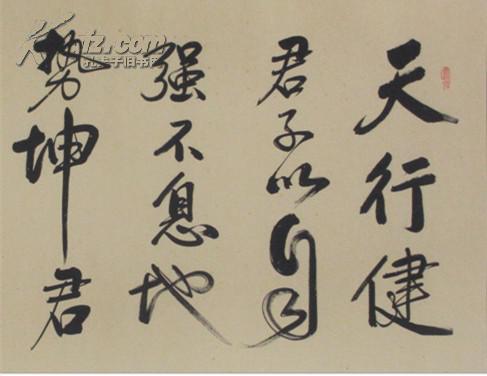 天行健
君子以自
强不息地
势坤君
Kfz.com
孔夫子旧书网